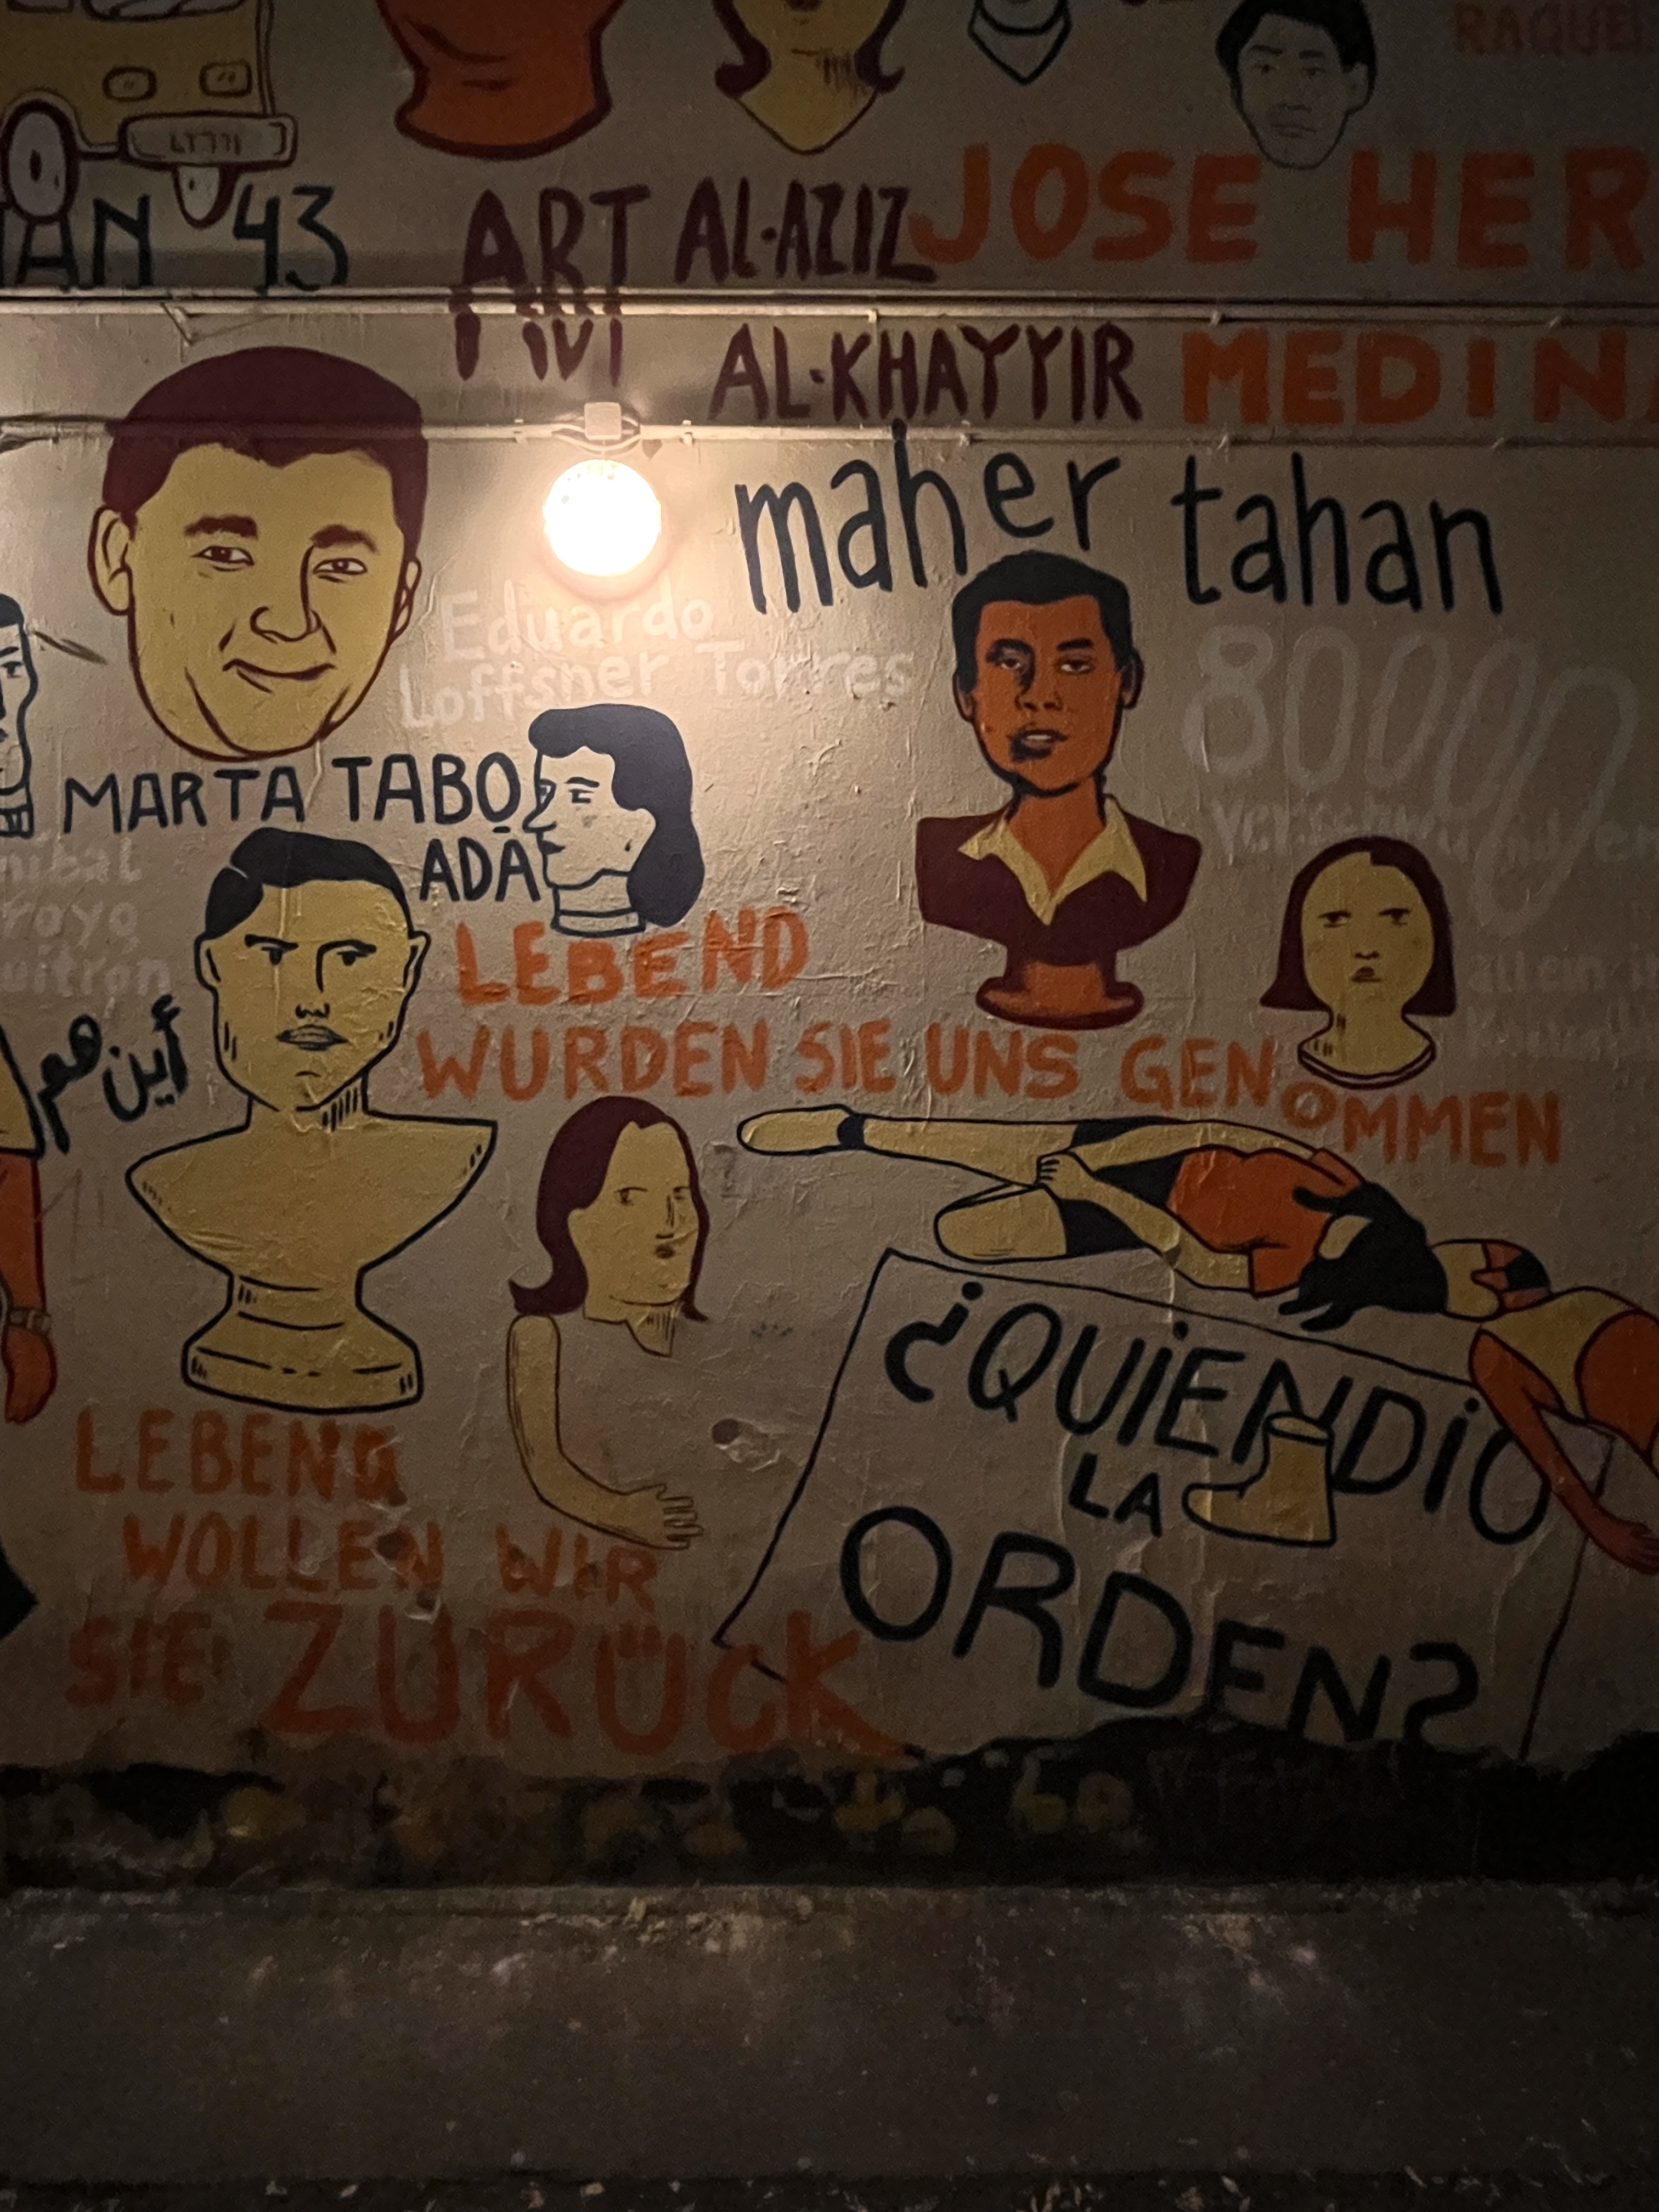 RAQUEL
43
ART AL-AZIZ
JOSE HER
AL-KHAYYIR
MEDINA
maher tahan
Eduardo
Loffsner Torres
80000
MARTA TABO
ADA
LEBEND
WURDEN SIE UNS GENOMMEN
أين هم
LEBEND
WOLLEN WIR
SIE ZURÜCK
¿QUIEN DIO
LA
ORDEN?